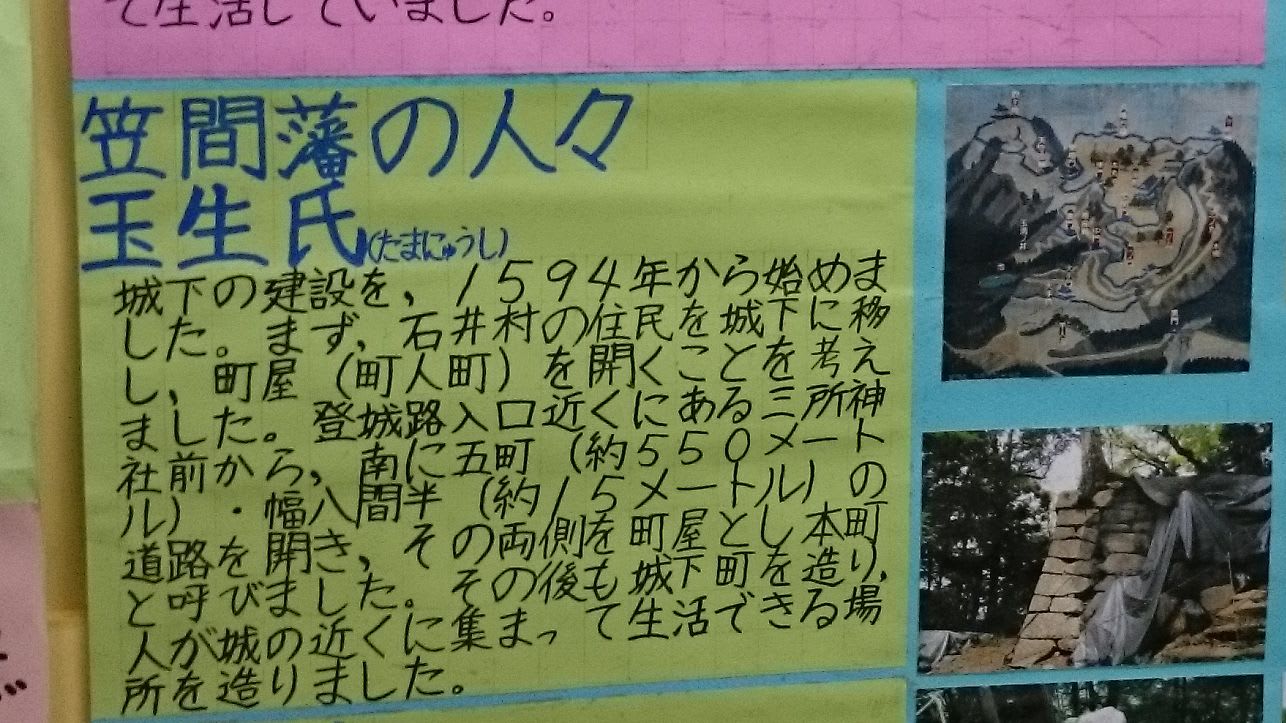 て生活していました。
笠間藩の人々
玉生氏(たまにゅうし)
城下の建設を，1594年から始めま
した。まず，石井村の住民を城下に移
し，町屋（町人町）を開くことを考え
ました。登城路入口近くにある三所神
社前から，南に五町（約550メート
ル）・幅八間半（約15メートル）の
道路を開き，その両側を町屋とし本町
と呼びました。その後も城下町を造り，
人が城の近くに集まって生活できる場
所を造りました。